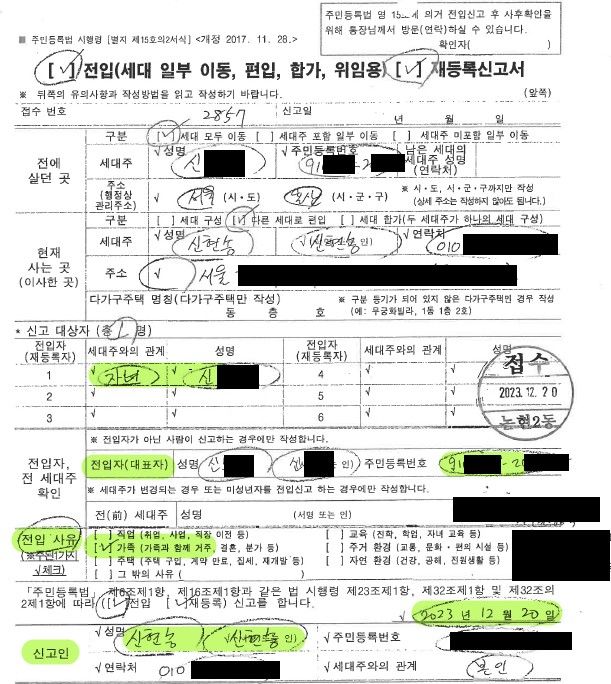 주민등록법 령 15조에 의거 전입신고 후 사후확인을
위해 통장님께서 방문(연락)하실 수 있습니다.
확인자( )
■ 주민등록법 시행령 [별지 제15호의2서식] <개정 2017. 11. 28.>
[√] 전입(세대 일부 이동, 편입, 합가, 위임용) [√] 재등록신고서
※ 뒤쪽의 유의사항과 작성방법을 읽고 작성하기 바랍니다. (앞쪽)
접수 번호 2857 신고일 년 월 일
전에 살던 곳
구분 [√] 세대 모두 이동 [ ] 세대주 포함 일부 이동 [ ] 세대주 미포함 일부 이동
세대주 √성명 신 √주민등록번호 91 - 2 남은 세대의 세대주 성명 (연락처)
주소 (행정상 관리주소) √ 서울 (시·도) (시·군·구) ※ 시·도, 시·군·구까지만 작성 (상세 주소는 작성하지 않아도 됩니다.)
현재 사는 곳 (이사한 곳)
구분 [ ] 세대 구성 [√] 다른 세대로 편입 [ ] 세대 합가(두 세대주가 하나의 세대 구성)
세대주 √성명 신현농 √ 신현농 인) √연락처 010
주소 √ 서울
다가구주택 명칭(다가구주택만 작성) 동 층 호 ※ 구분 등기가 되어 있지 않은 다가구주택인 경우 작성 (예: 무궁화빌라, 1동 1층 2호)
* 신고 대상자 (총 1 명)
전입자 (재등록자) 세대주와의 관계 성명 전입자 (재등록자) 세대주와의 관계 성명
1 √ 자녀 √ 신 4 √ √
2 √ √ 5 √ √
3 √ √ 6 √ √
접수
2023. 12. 20
논현2동
전입자, 전 세대주 확인
※ 전입자가 아닌 사람이 신고하는 경우에만 작성합니다.
전입자(대표자) 성명 신 신 는 인) 주민등록번호 91 - 20
※ 세대주가 변경되는 경우 또는 미성년자를 전입신고 하는 경우에만 작성합니다.
전(前) 세대주 성명 (서명 또는 인)
전입 사유
√체크)
[ ] 직업 (취업, 사업, 직장 이전 등) [ ] 교육 (진학, 학업, 자녀 교육 등)
[√] 가족 (가족과 함께 거주, 결혼, 분가 등) [ ] 주거 환경 (교통, 문화·편의 시설 등)
[ ] 주택 (주택 구입, 계약 만료, 집세, 재개발 등) [ ] 자연 환경 (건강, 공해, 전원생활 등)
[ ] 그 밖의 사유 ( )
「주민등록법」 제6조제1항, 제16조제1항과 같은 법 시행령 제23조제1항, 제32조제1항 및 제32조의
2제1항에 따라 ([√]전입 [√]재등록) 신고를 합니다.
√ 2023 년 12 월 20 일
신고인
√성명 신현농 √ 신현농 인) √주민등록번호
√연락처 010 √세대주와의 관계 본인